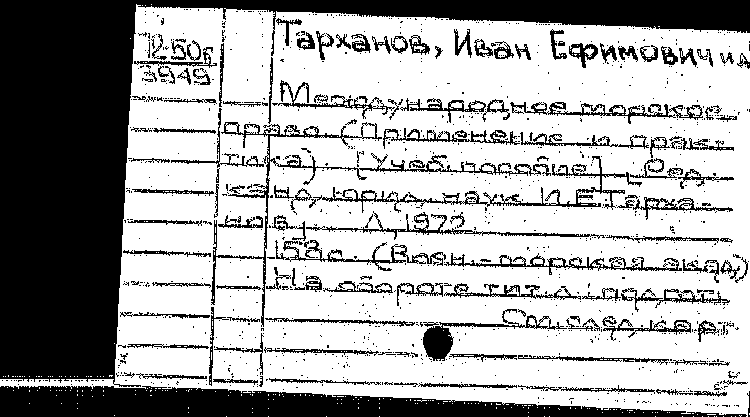 12-50б
3949
Тарханов, Иван Ефимович и д
Международное морское
право. (Применение и прак-
тика). [Учеб. пособие] [Ред.
канд. юрид. наук И.Е.Тарха-
нов]. Л., 1972.
158с. (Воен.-морская акад.)
На обороте тит. л.: подгот.
См. след. карт.